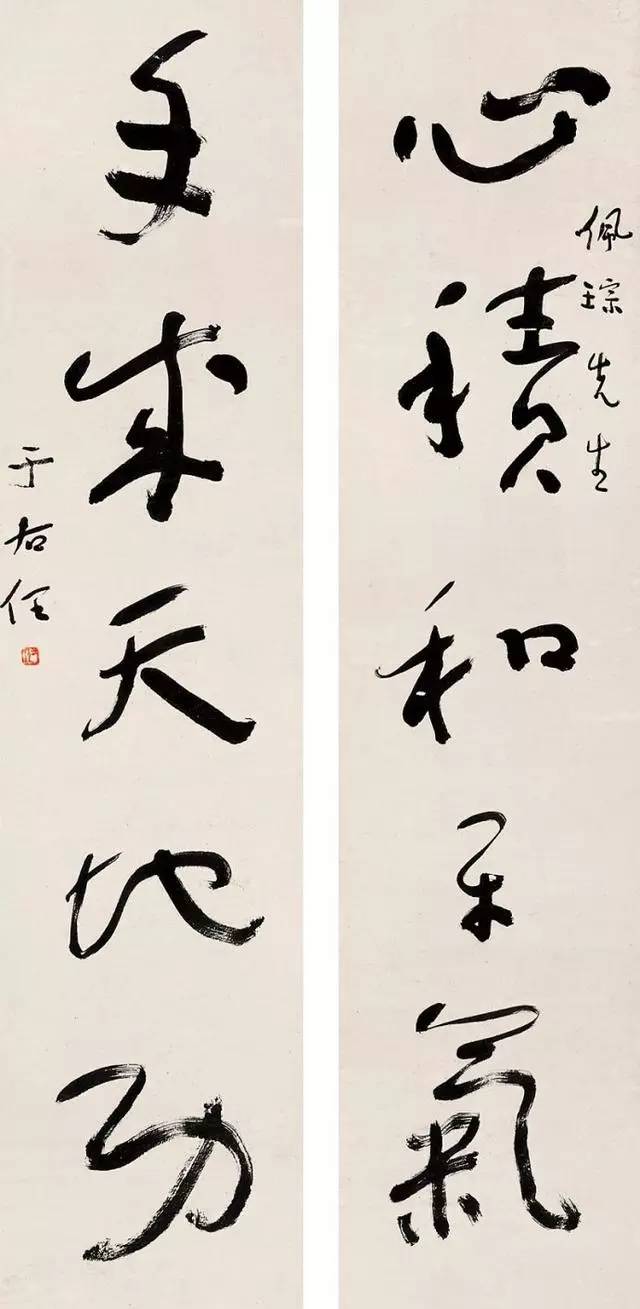 佩琮先生
心積和平氣
手成天地功
于右任